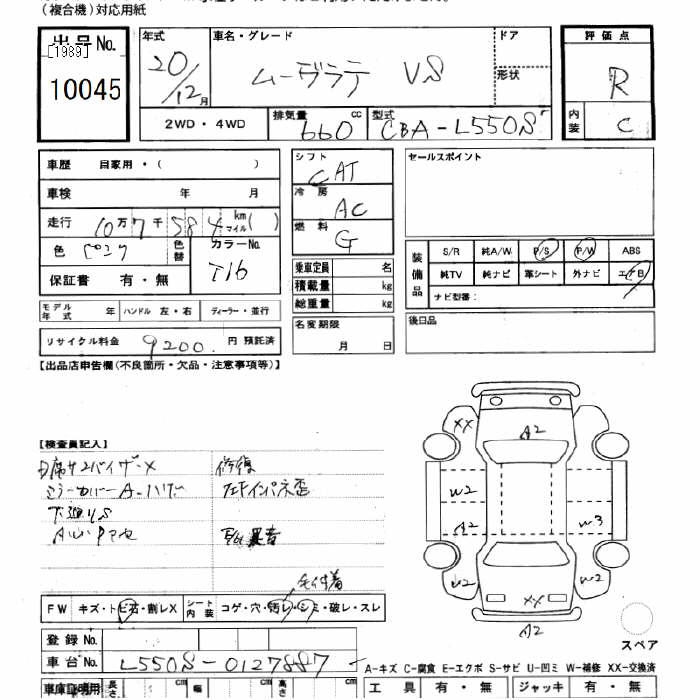 (複合機)対応用紙
出品No.
[1989]
10045
年式 20/12月
車名・グレード ムーヴラテ VS
ドア
形状
評価点 R
内装 C
2WD・4WD
排気量 660 cc
型式 CBA-L550S
車歴 自家用・( )
車検 年 月
走行 10万7千584 km マイル( )
色 ピンク 色替
カラーNo. T16
保証書 有・無
シフト CAT
冷房 AC
燃料 G
乗車定員 名
積載量 kg
総重量 kg
セールスポイント
装備品
S/R 純A/W P/S P/W ABS
純TV 純ナビ 革シート 外ナビ エアB
ナビ型番:
モデル年式 年 ハンドル 左・右 ディーラー・並行
名変期限 月 日
後日品
リサイクル料金 9200 円 預託済
【出品店申告欄(不良箇所・欠品・注意事項等)】
【検査員記入】
D席サンバイザーX 修復
ミラーカバーA・ハガレ
下廻りS
毛付着
FW キズ・トビ石・割レX シート内装 コゲ・穴・汚レ・シミ・破レ・スレ
A2
XX
W2
A2
W3
W2
W2
XX
A2
スペア
登録No.
車台No. L550S-0127887
A-キズ C-腐食 E-エクボ S-サビ U-凹ミ W-補修 XX-交換済
車庫証明用 長さ cm 幅 cm 高さ cm
工具 有・無 ジャッキ 有・無